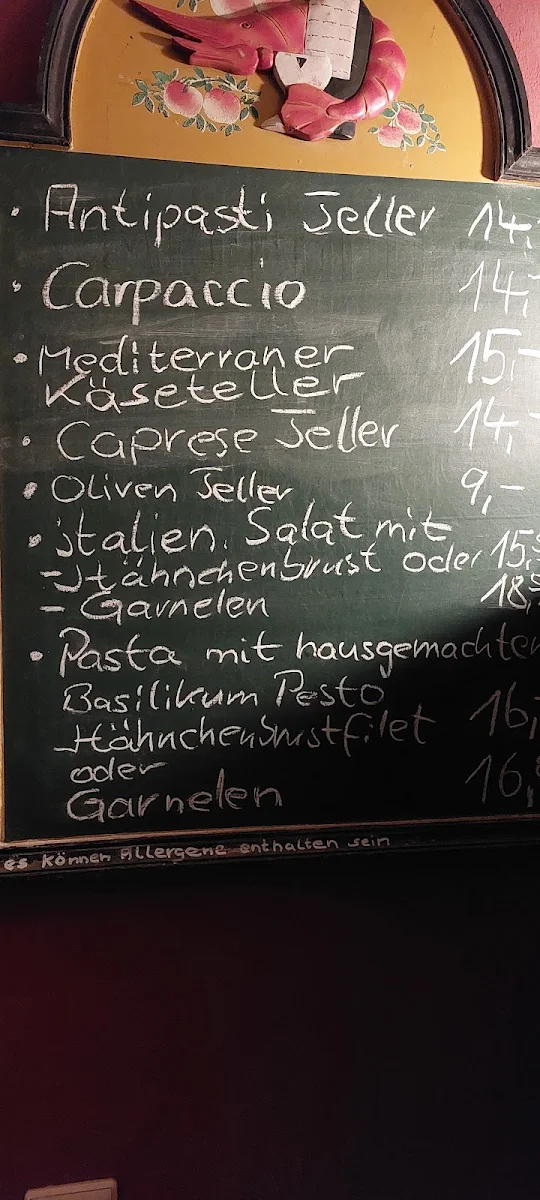 • Antipasti Teller 14,-
• Carpaccio 14,-
• Mediterraner 15,-
Käseteller
• Caprese Teller 14,-
• Oliven Teller 9,-
• italien. Salat mit
- Hähnchenbrust oder 15,
- Garnelen 18,
• Pasta mit hausgemachten
Basilikum Pesto
Hähnchenbrustfilet 16,
oder
Garnelen 16,
es können Allergene enthalten sein